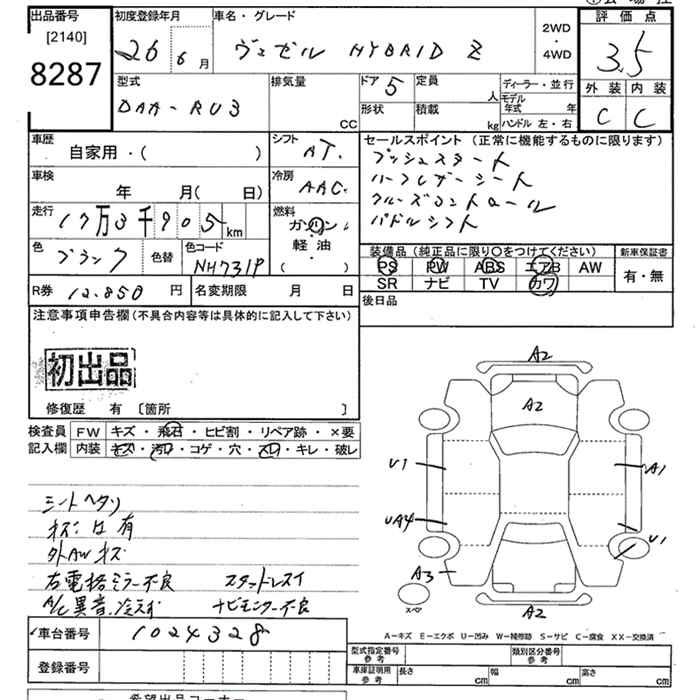 出品番号
[2140]
8287
初度登録年月
26 6月
車名・グレード
ヴェゼル HYBRID Z
2WD
4WD
評価点
3.5
型式
DAA-RU3
排気量
CC
ドア 5
定員
人
形状
積載
kg
ディーラー・並行
モデル
年式 年
ハンドル 左・右
外装 内装
C C
車歴
自家用・( )
シフト
AT.
車検
年 月( 日)
冷房
AAC.
走行
17万3千905km
燃料
ガソリン
軽油
( )
色
ブラック
色替
色コード
NH731P
R券 12.850 円
名変期限 月 日
セールスポイント(正常に機能するものに限ります)
プッシュスタート
ハーフレザーシート
クルーズコントロール
パドルシフト
装備品(純正品に限り○をつけてください)
PS PW ABS エアB AW
SR ナビ TV カワ
新車保証書
有・無
後日品
注意事項申告欄(不具合内容等は具体的に記入して下さい)
初出品
修復歴 有 〔箇所 〕
検査員
記入欄
FW キズ・飛石・ヒビ割・リペア跡・×要
内装 キズ・汚れ・コゲ・穴・スレ・キレ・破レ
シートヘタリ
キズ有
外AWキズ
右電格ミラー不良 スタッドレスタイ
A/C異音、冷えず ナビモニター不良
A2
A2
U1
A1
UA4
U1
A3
スペ
A2
A-キズ E-エクボ U-凹み W-補修跡 S-サビ C-腐食 XX-交換済
車台番号
1024328
登録番号
型式指定番号
参考
類別区分番号
参考
車庫証明用
参考
長さ cm
幅 cm
高さ cm
希望出品コーナー